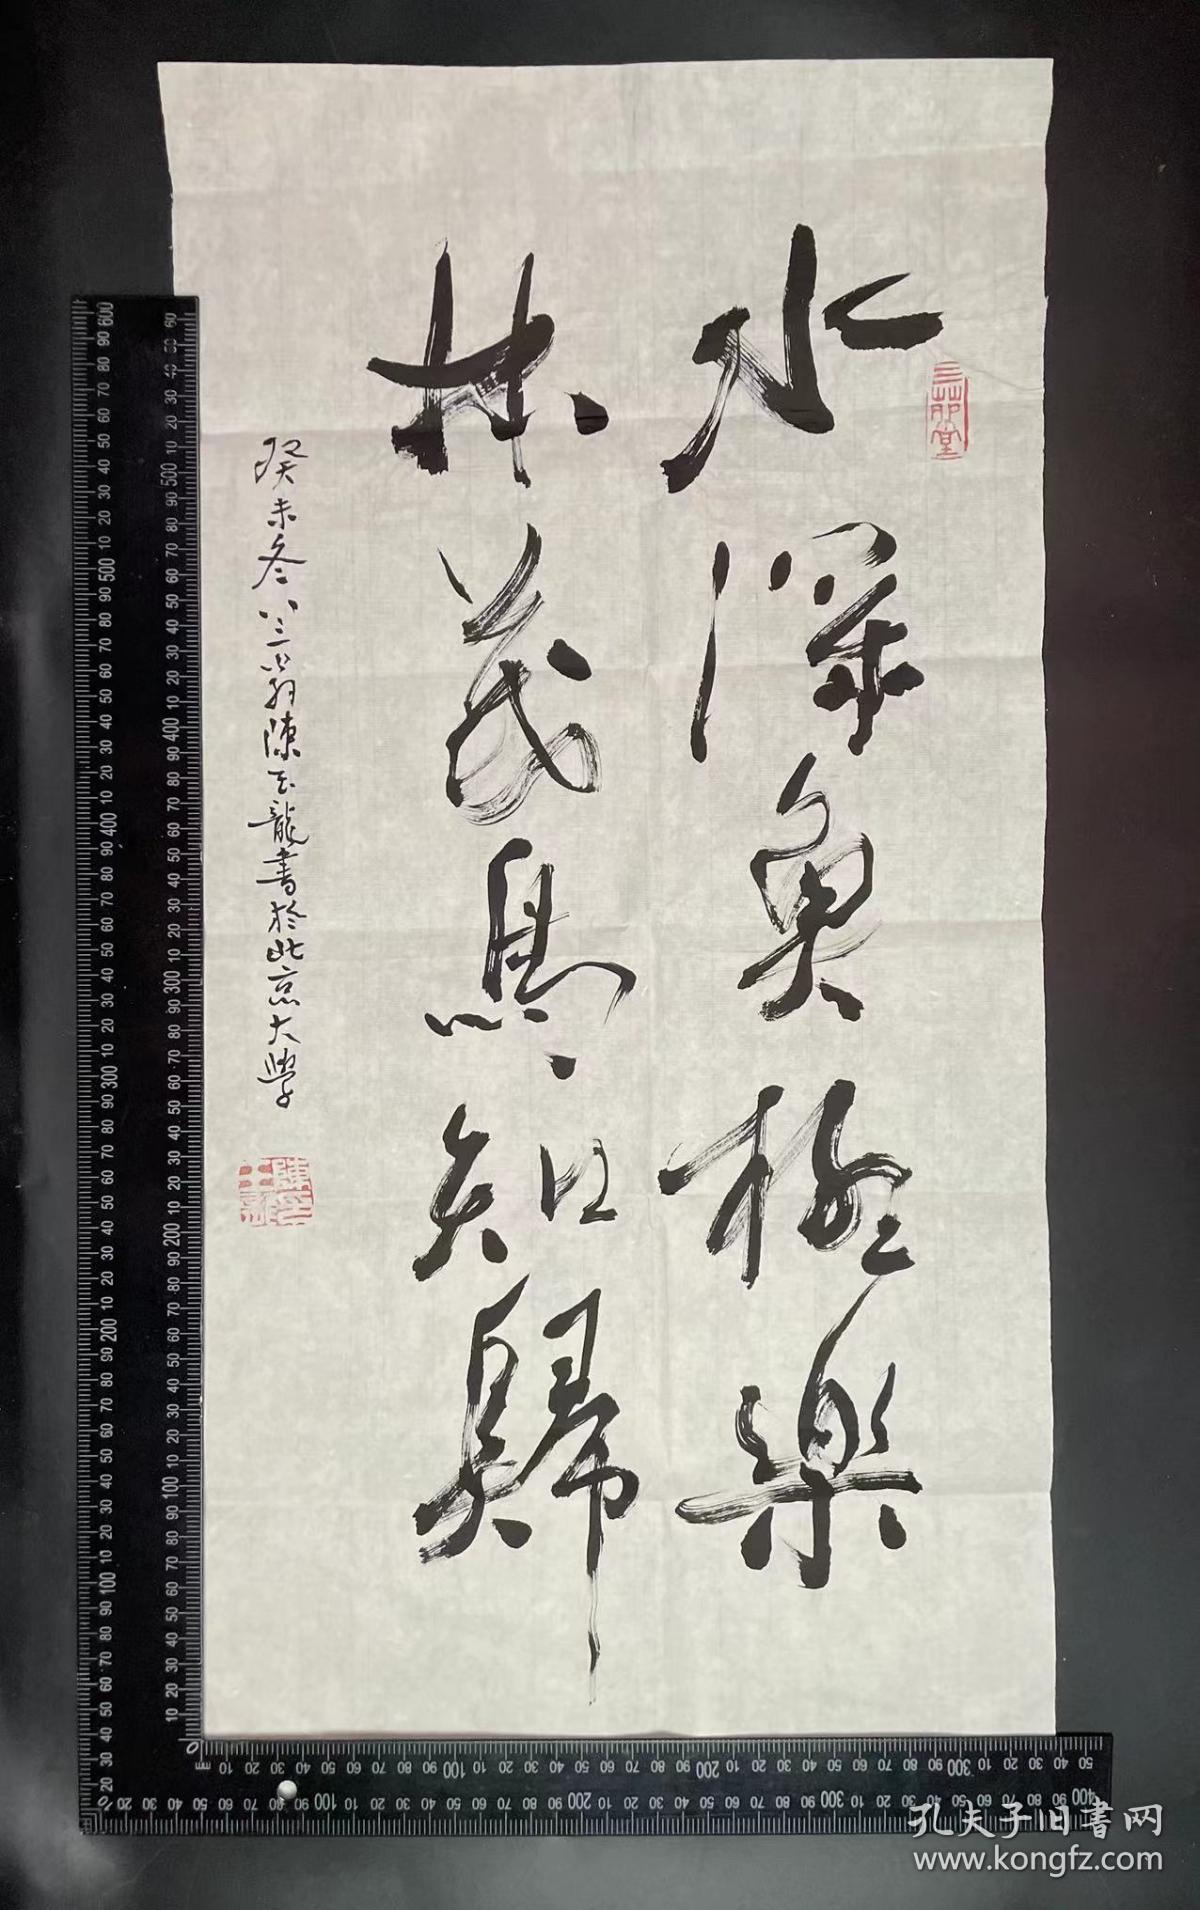 水深魚極樂
林茂鳥知歸
癸未冬八三翁陳玉龍書於北京大學
三茆堂
孔夫子旧書网
www.kongfz.com